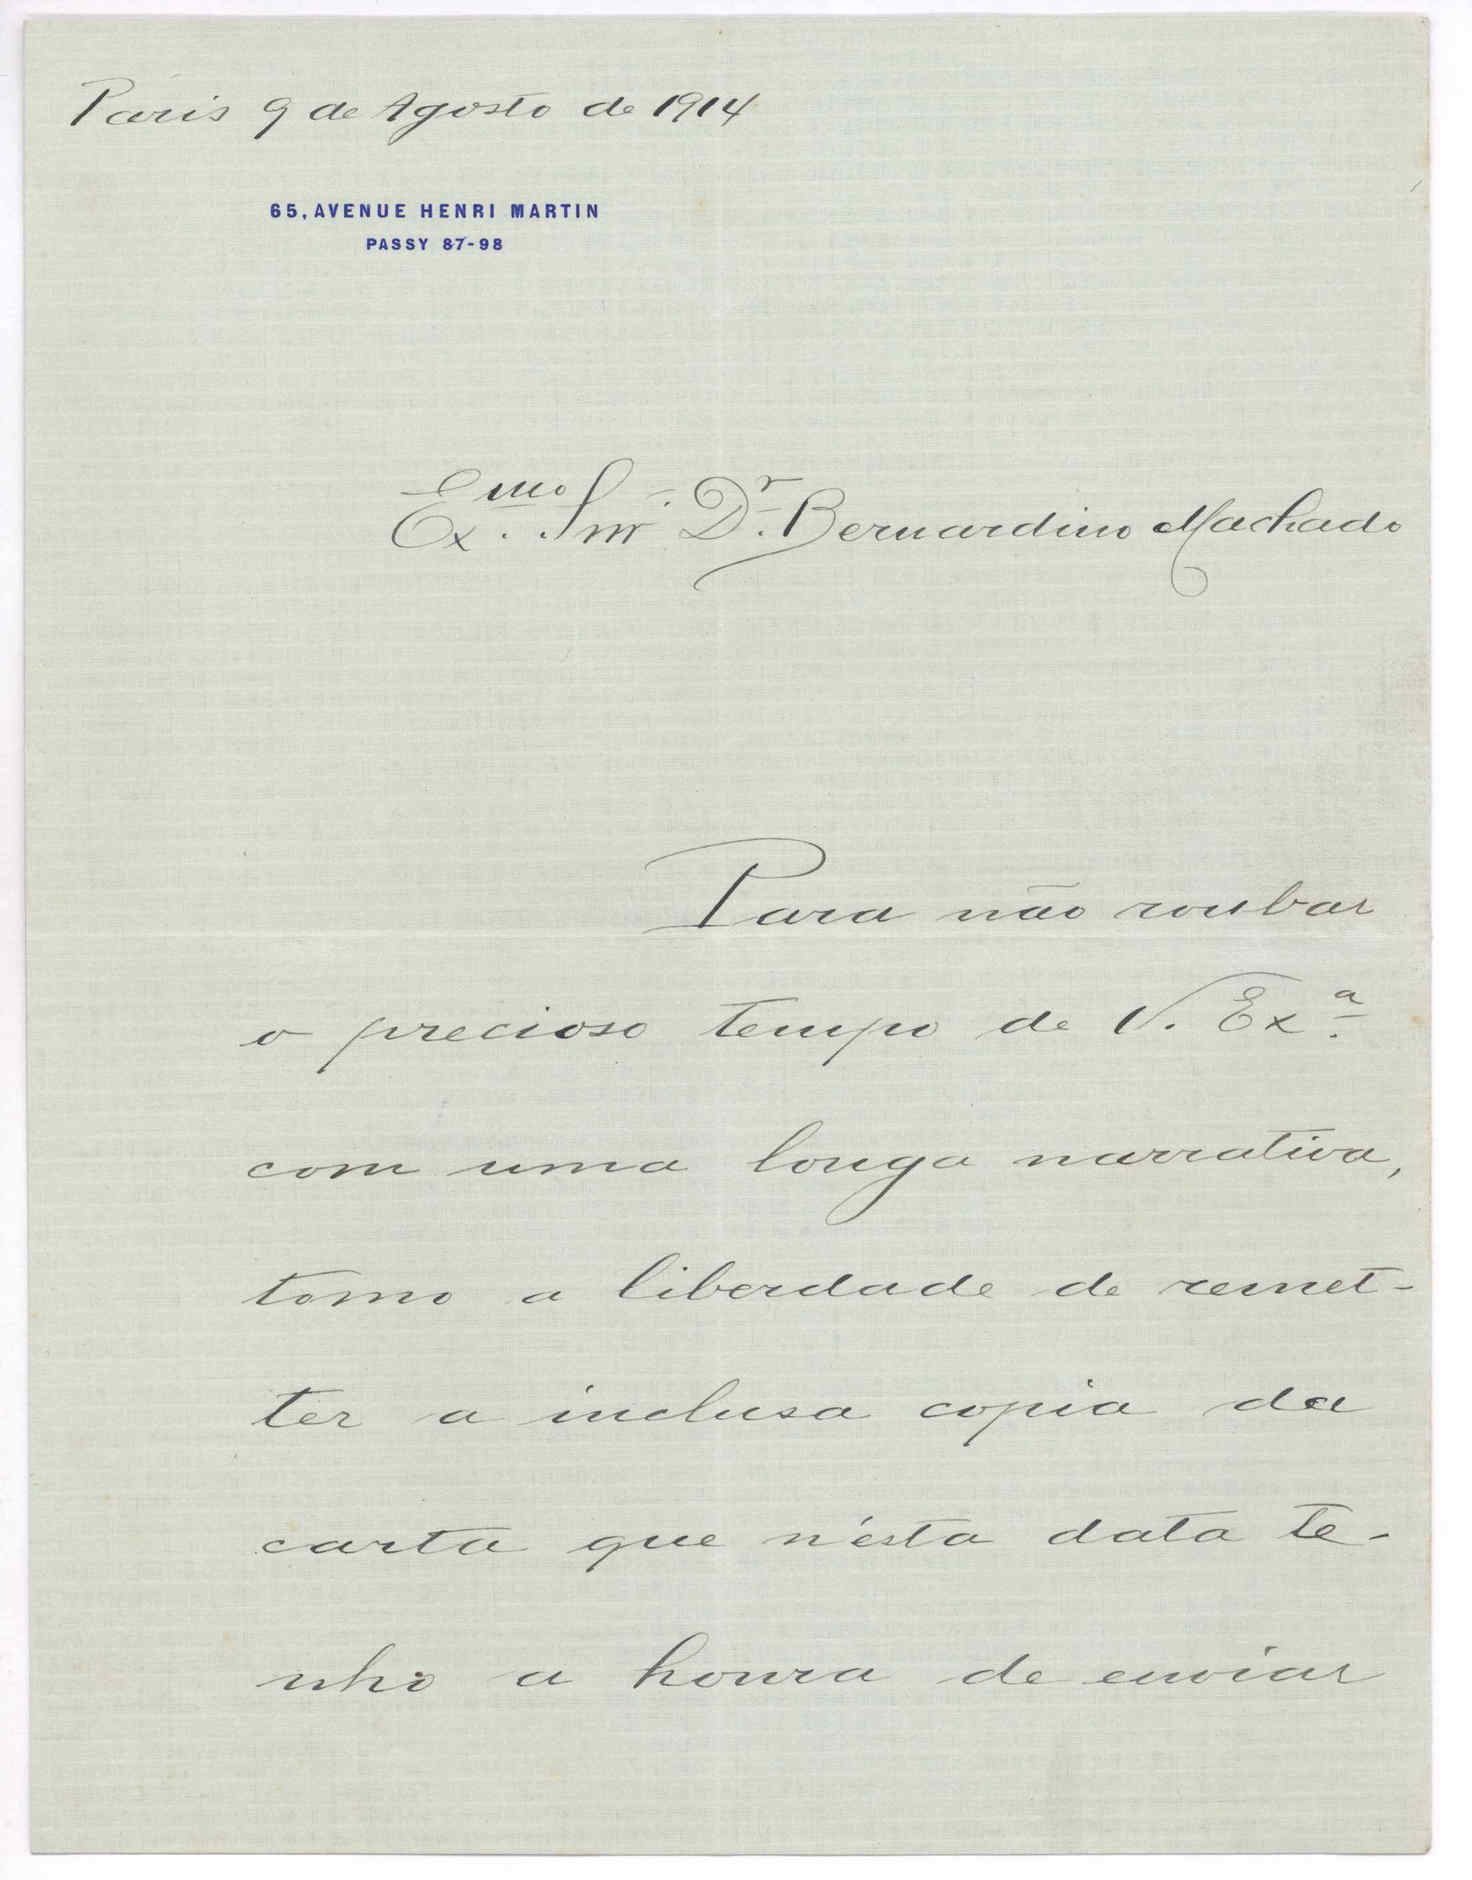 Paris 9 de Agosto de 1914
65, AVENUE HENRI MARTIN
PASSY 87-98
Exmo. Snr. Dr. Bernardino Machado
Para não roubar
o precioso tempo de V. Exa.
com uma longa narrativa,
tomo a liberdade de remet-
ter a inclusa copia da
carta que n'esta data te-
nho a honra de enviar